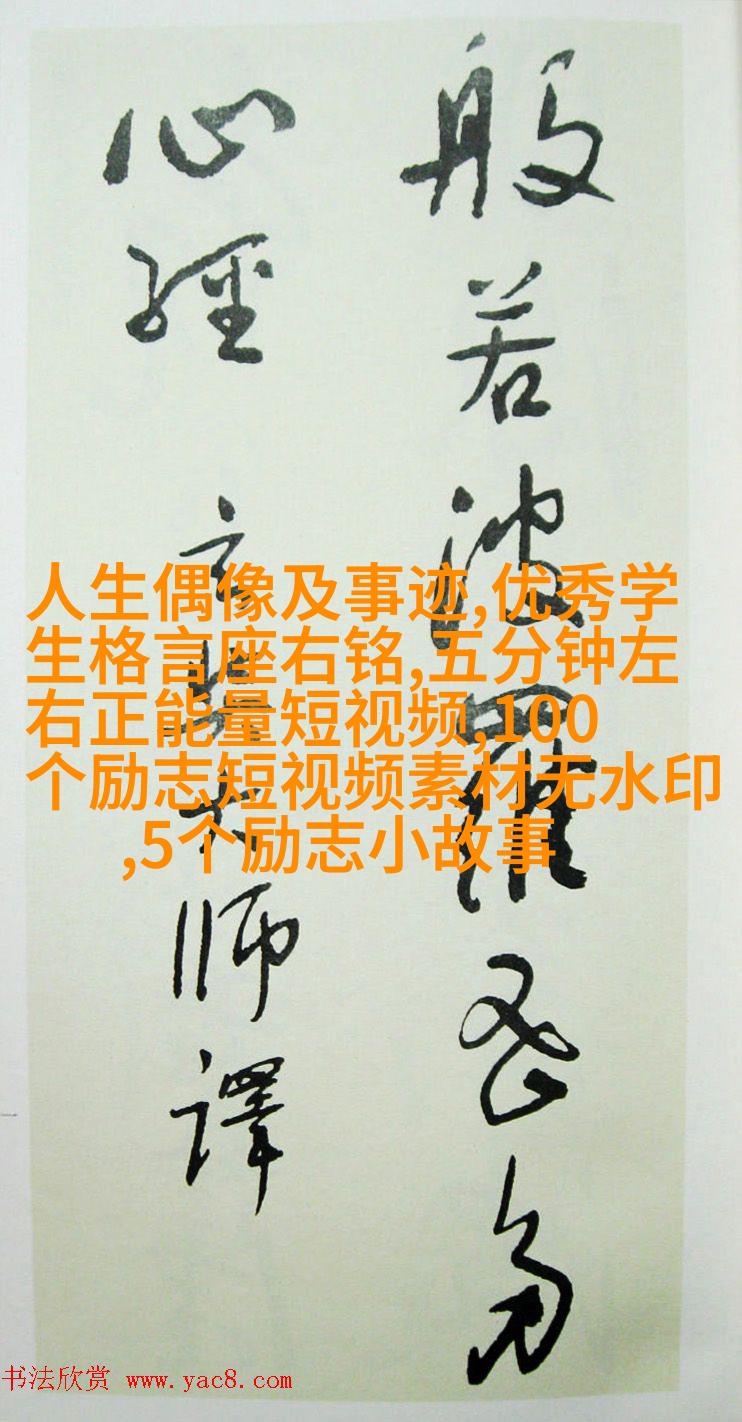 般若波羅蜜多
心經 玄奘大师譯
人生偶像及事迹,优秀学
生格言座右铭,五分钟左
右正能量短视频,100
个励志短视频素材无水印
,5个励志小故事
书法欣赏 www.yac8.com